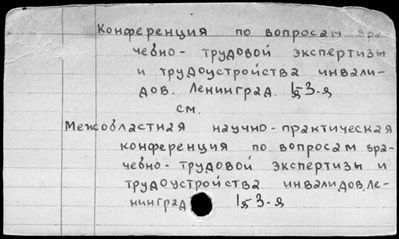 Конференция по вопросам вра-
чебно-трудовой экспертизы
и трудоустройства инвали-
дов. Ленинград. 3-я
см.
Межобластная научно-практическая
конференция по вопросам вра-
чебно-трудовой экспертизы и
трудоустройства инвалидов Ле-
нинград 3-я